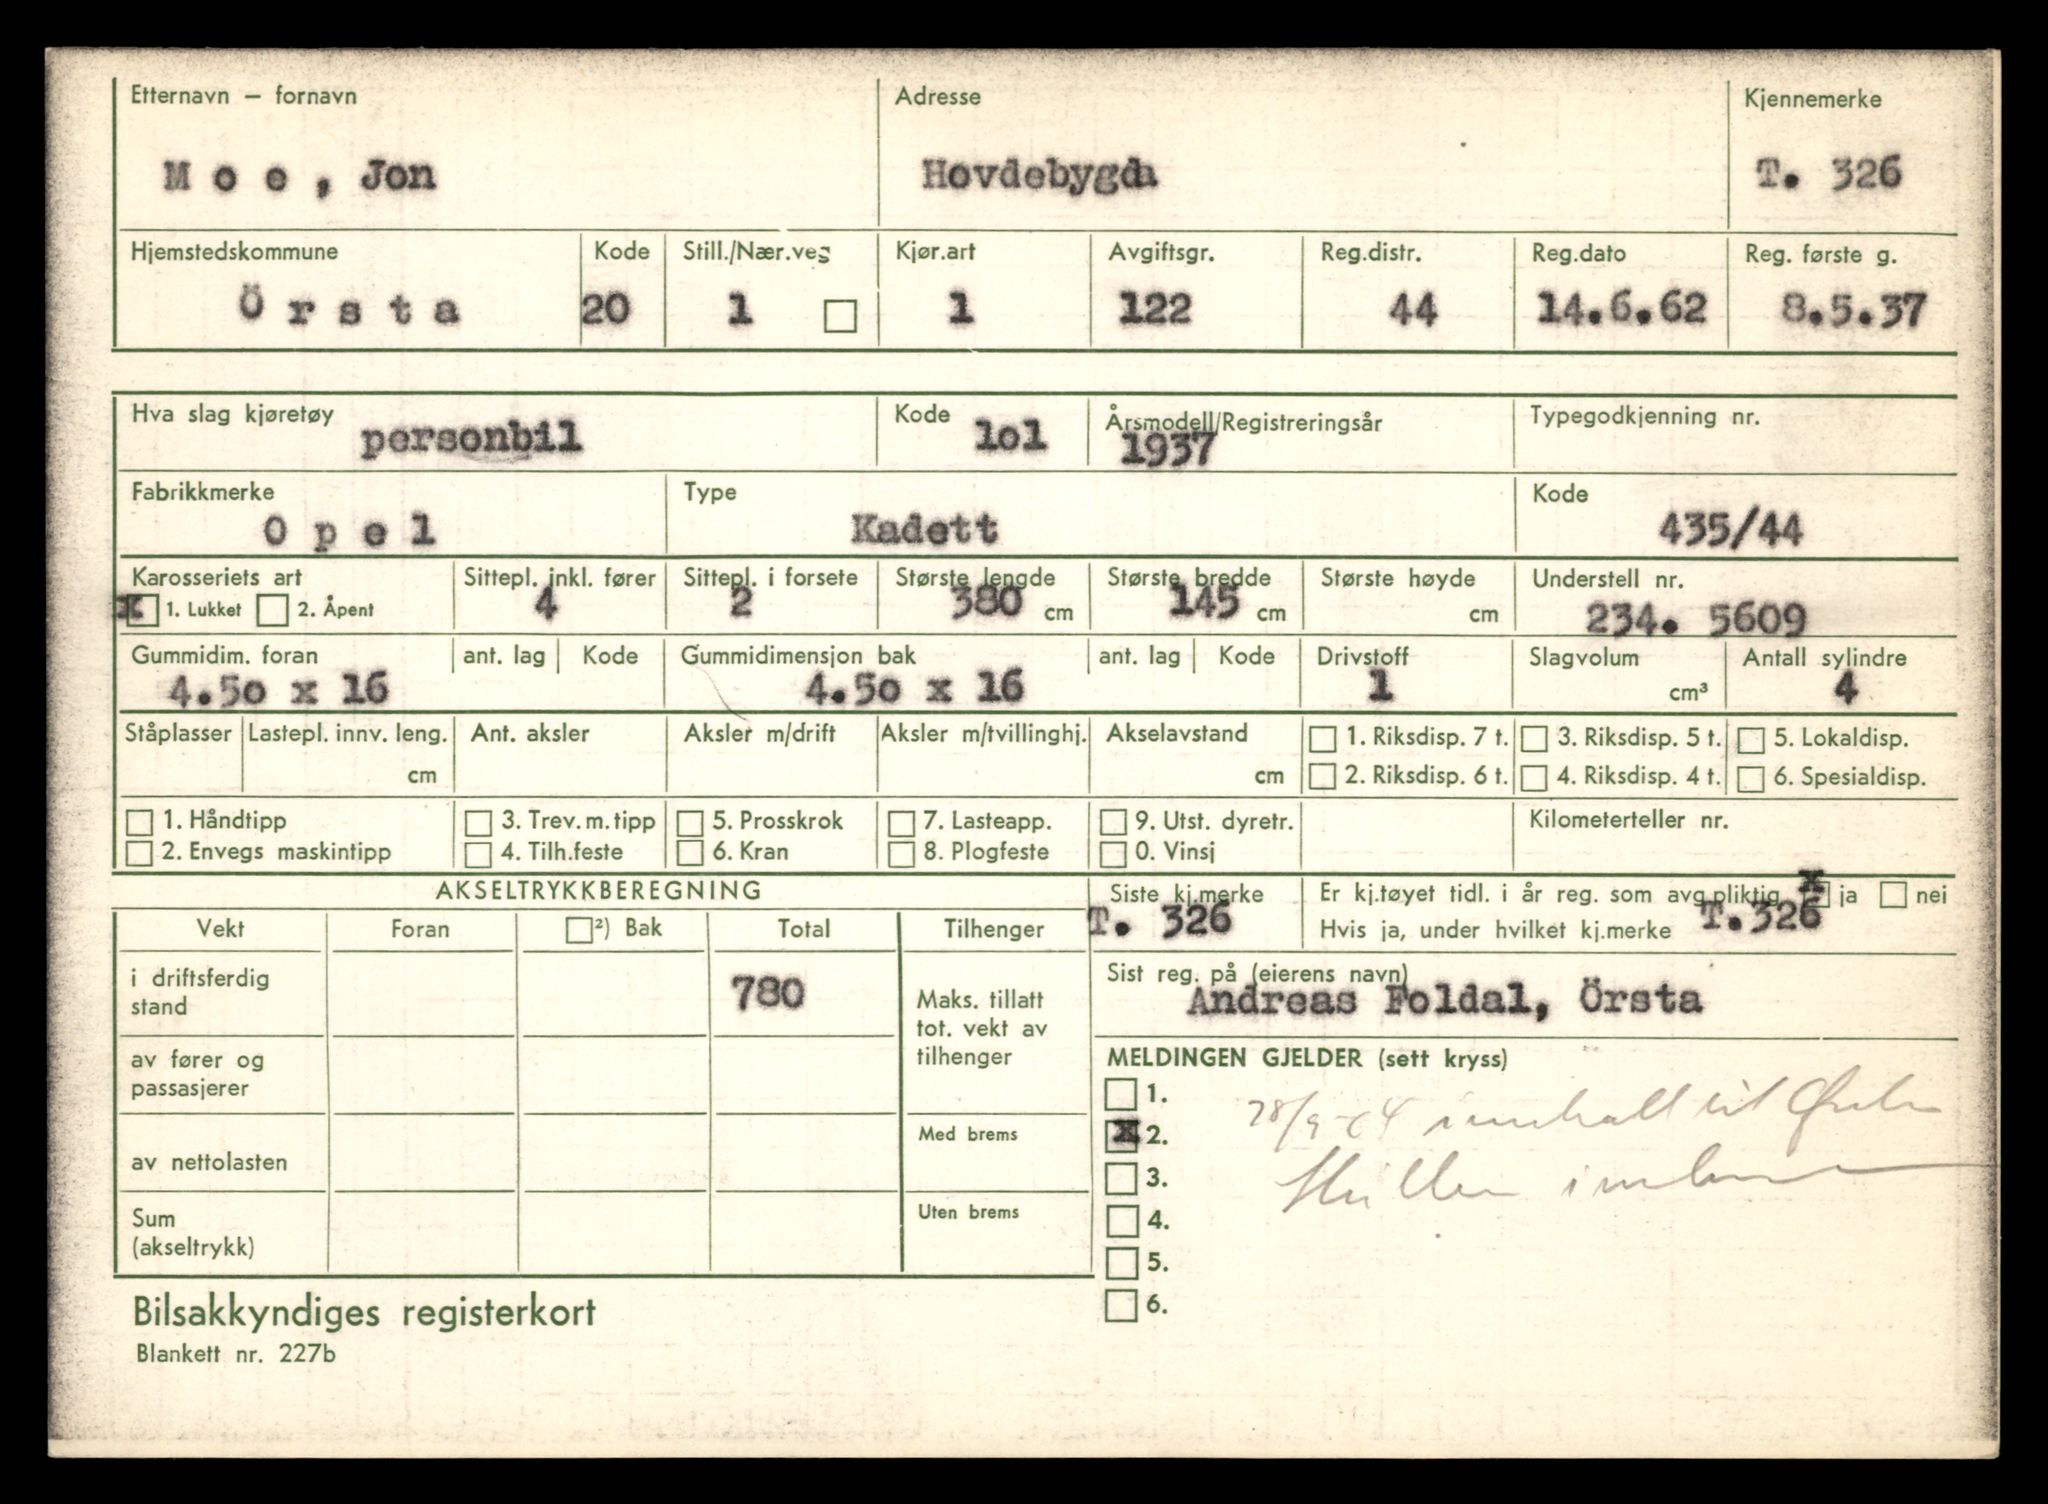 Etternavn – fornavn Adresse Kjennemerke
Moe, Jon Hovdebygda T. 326
Hjemstedskommune Kode Still./Nær.veg Kjør.art Avgiftsgr. Reg.distr. Reg.dato Reg. første g.
Örsta 20 1 1 122 44 14.6.62 8.5.37
Hva slag kjøretøy Kode Årsmodell/Registreringsår Typegodkjenning nr.
personbil lol 1937
Fabrikkmerke Type Kode
Opel Kadett 435/44
Karosseriets art Sittepl. inkl. fører Sittepl. i forsete Største lengde Største bredde Største høyde Understell nr.
x 1. Lukket 2. Åpent 4 2 380 cm 145 cm cm 234. 5609
Gummidim. foran ant. lag Kode Gummidimensjon bak ant. lag Kode Drivstoff Slagvolum Antall sylindre
4.5o x 16 4.5o x 16 1 cm³ 4
Ståplasser Lastepl. innv. leng. Ant. aksler Aksler m/drift Aksler m/tvillinghj. Akselavstand 1. Riksdisp. 7 t. 3. Riksdisp. 5 t. 5. Lokaldisp.
cm cm 2. Riksdisp. 6 t. 4. Riksdisp. 4 t. 6. Spesialdisp.
1. Håndtipp 3. Trev.m.tipp 5. Prosskrok 7. Lasteapp. 9. Utst. dyretr. Kilometerteller nr.
2. Envegs maskintipp 4. Tilh.feste 6. Kran 8. Plogfeste 0. Vinsj
AKSELTRYKKBEREGNING Siste kj.merke Er kj.tøyet tidl. i år reg. som avg.pliktig x ja nei
T. 326 Hvis ja, under hvilket kj.merke T.326
Vekt Foran ²) Bak Total Tilhenger
i driftsferdig stand 780 Maks. tillatt tot. vekt av tilhenger
Sist reg. på (eierens navn)
Andreas Foldal, Örsta
av fører og passasjerer
MELDINGEN GJELDER (sett kryss)
1.
x 2.
3.
4.
5.
6.
av nettolasten Med brems
Sum (akseltrykk) Uten brems
Bilsakkyndiges registerkort
Blankett nr. 227b